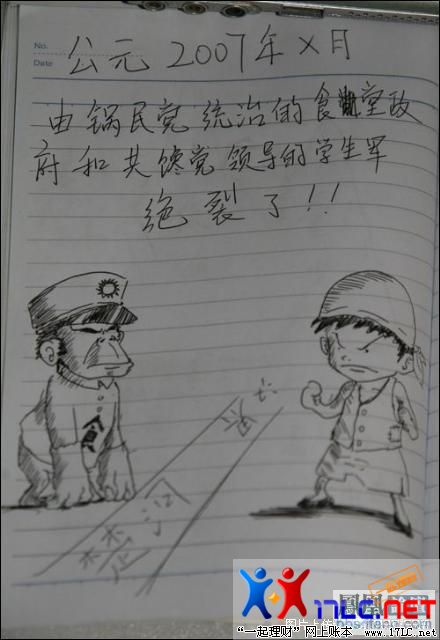 No.
Date
公元2007年X月
由锅民党统治的食堂政
府和共馋党领导的学生军
绝裂了!!
食
楚河
17LC.NET
"一起理财"网上账本 www.17LC.net